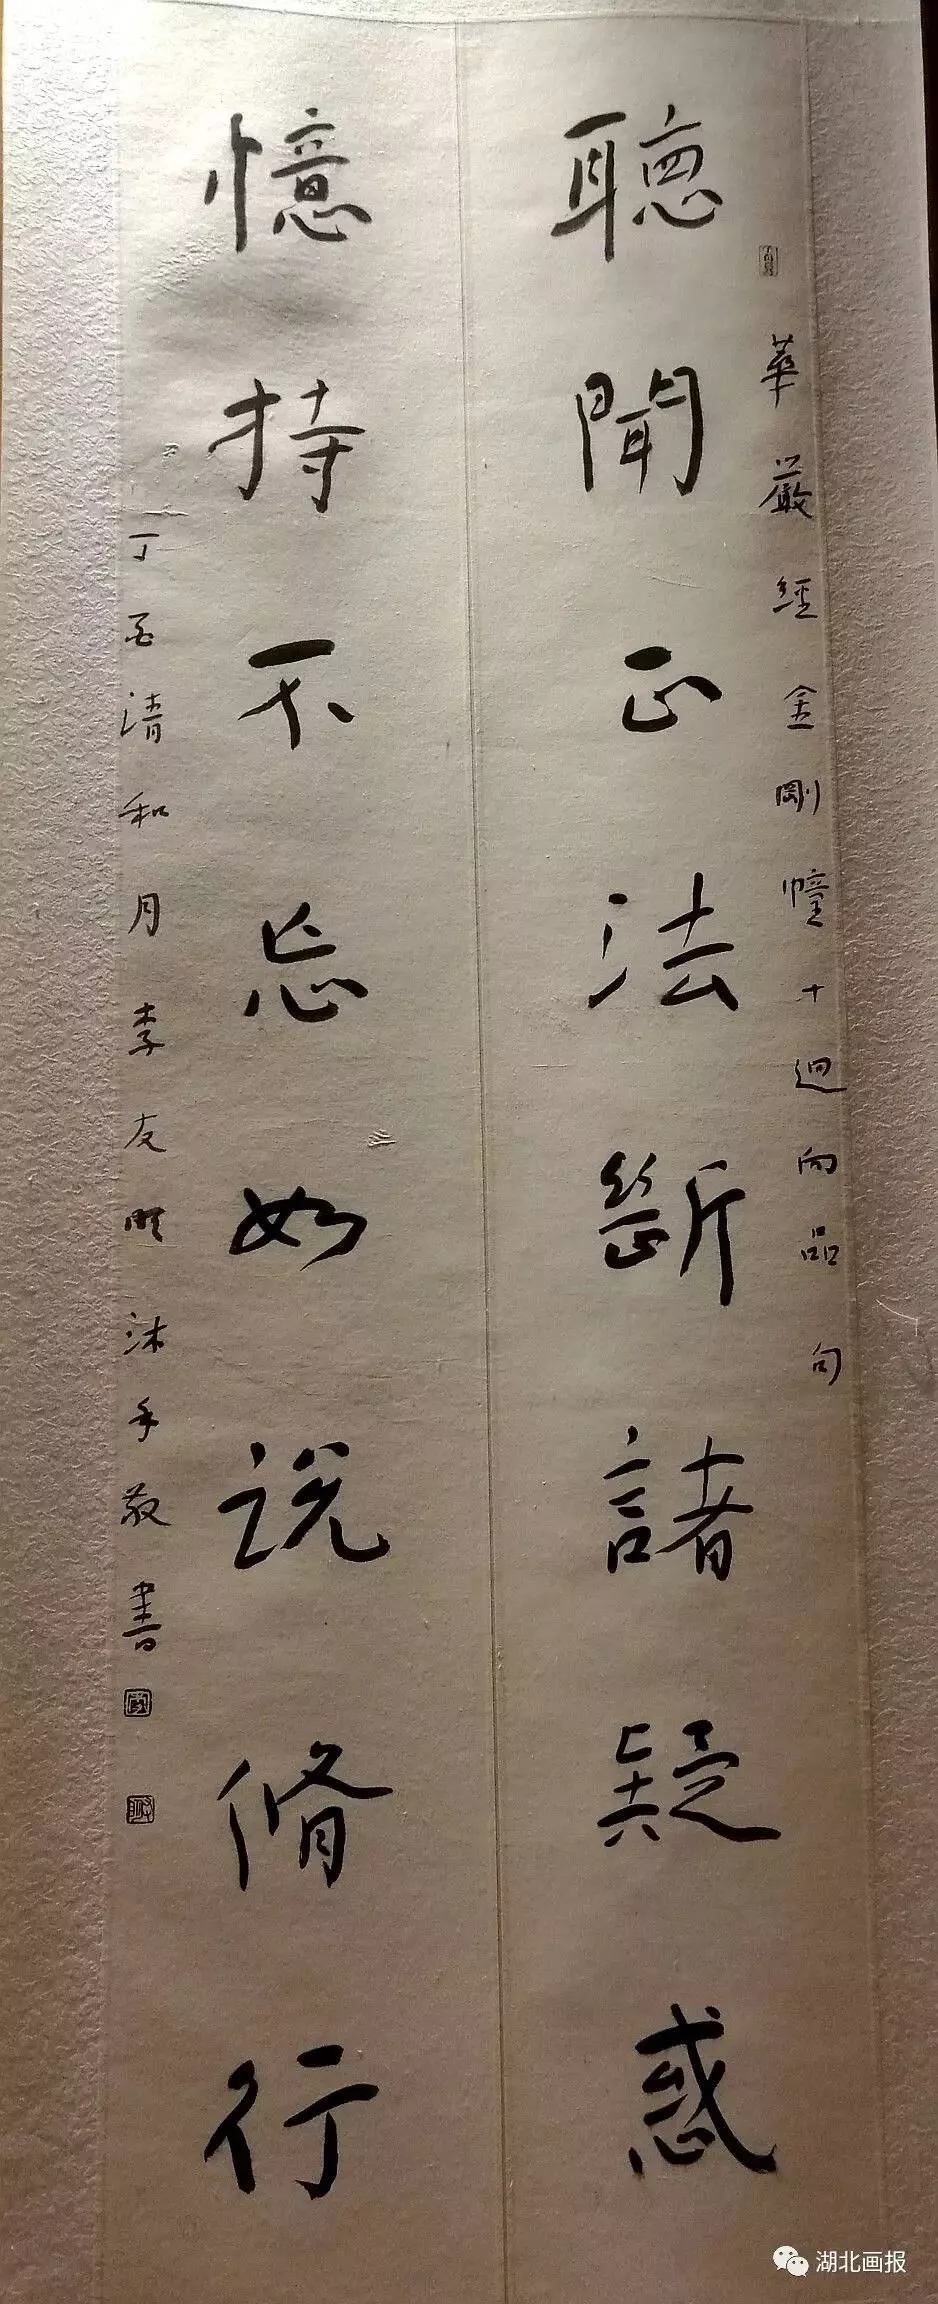 華嚴經金剛幢十迴向品句
聽聞正法斷諸疑惑
憶持不忘如說脩行
丁酉清和月李友明沐手敬書
湖北画报